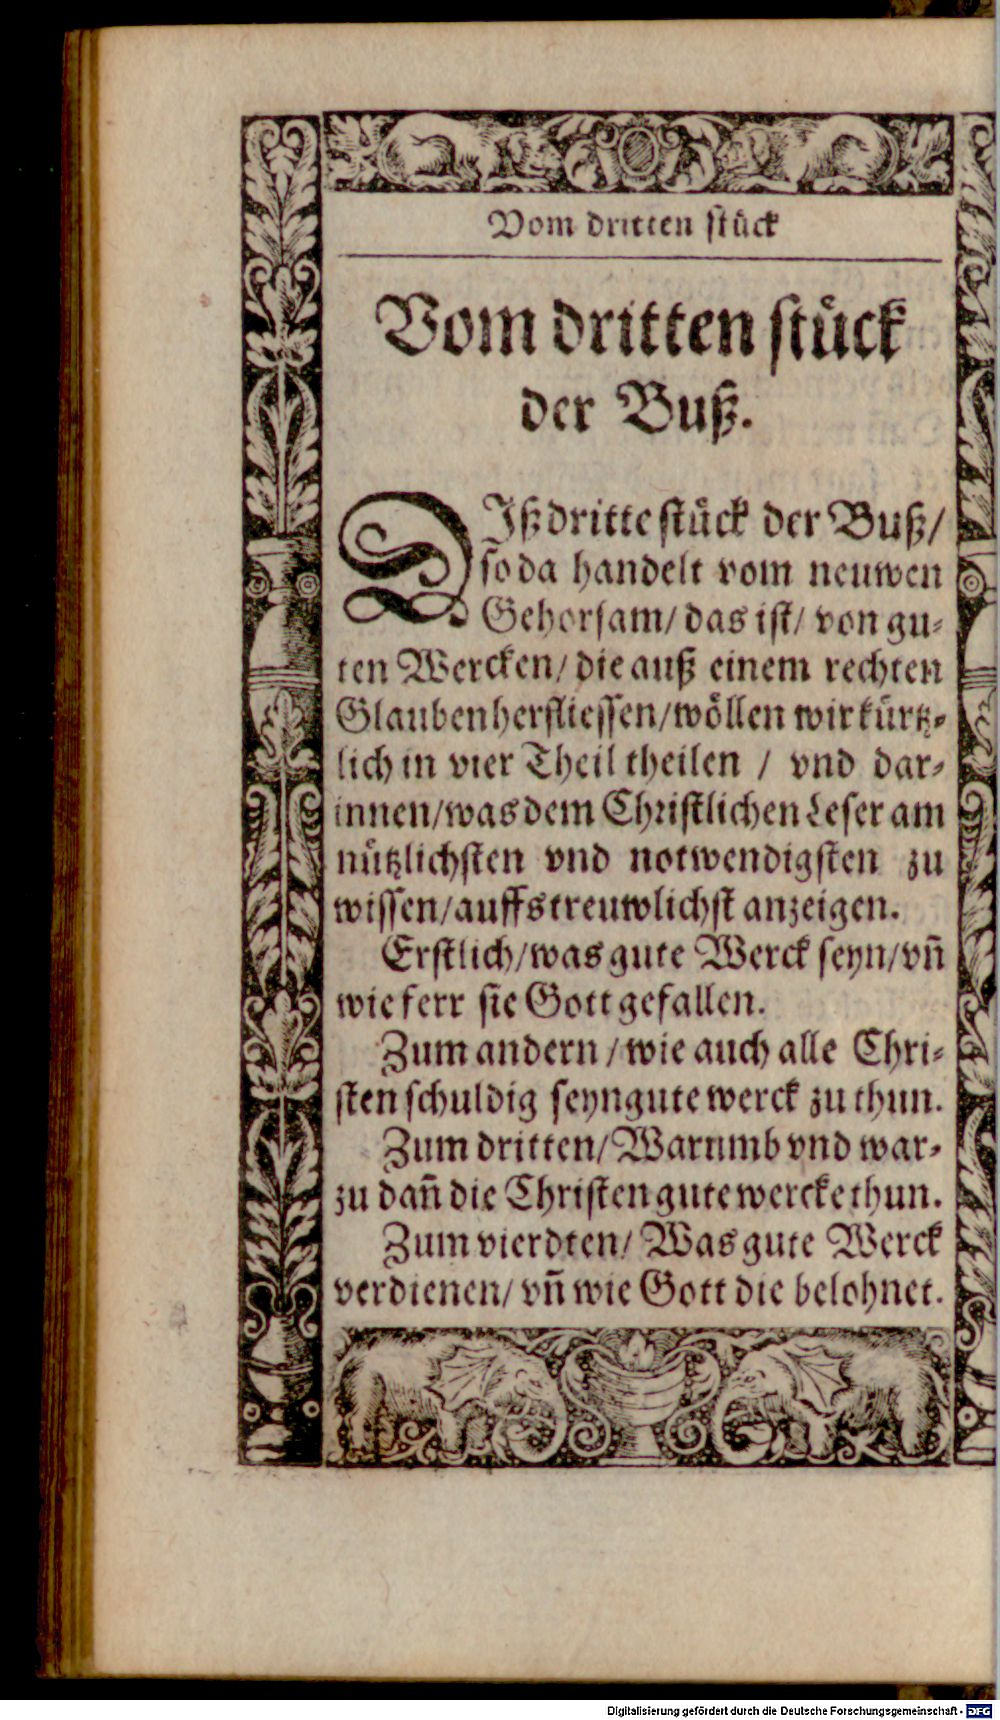 Vom dritten stuͤck
Vom dritten stuͤck
der Buß.
DIß dritte stuͤck der Buß/
so da handelt vom neuwen
Gehorsam/ das ist/ von gu-
ten Wercken/ die auß einem rechten
Glauben herfliessen/ woͤllen wir kuͤrtz-
lich in vier Theil theilen / vnd dar-
innen/ was dem Christlichen Leser am
nuͤtzlichsten vnd notwendigsten zu
wissen/ auffs treuwlichst anzeigen.
Erstlich/ was gute Werck seyn/ vñ
wie ferr sie Gott gefallen.
Zum andern / wie auch alle Chri-
sten schuldig seyn gute werck zu thun.
Zum dritten/ Warumb vnd war-
zu dañ die Christen gute wercke thun.
Zum vierdten/ Was gute Werck
verdienen/ vñ wie Gott die belohnet.
Digitalisierung gefördert durch die Deutsche Forschungsgemeinschaft - DFG